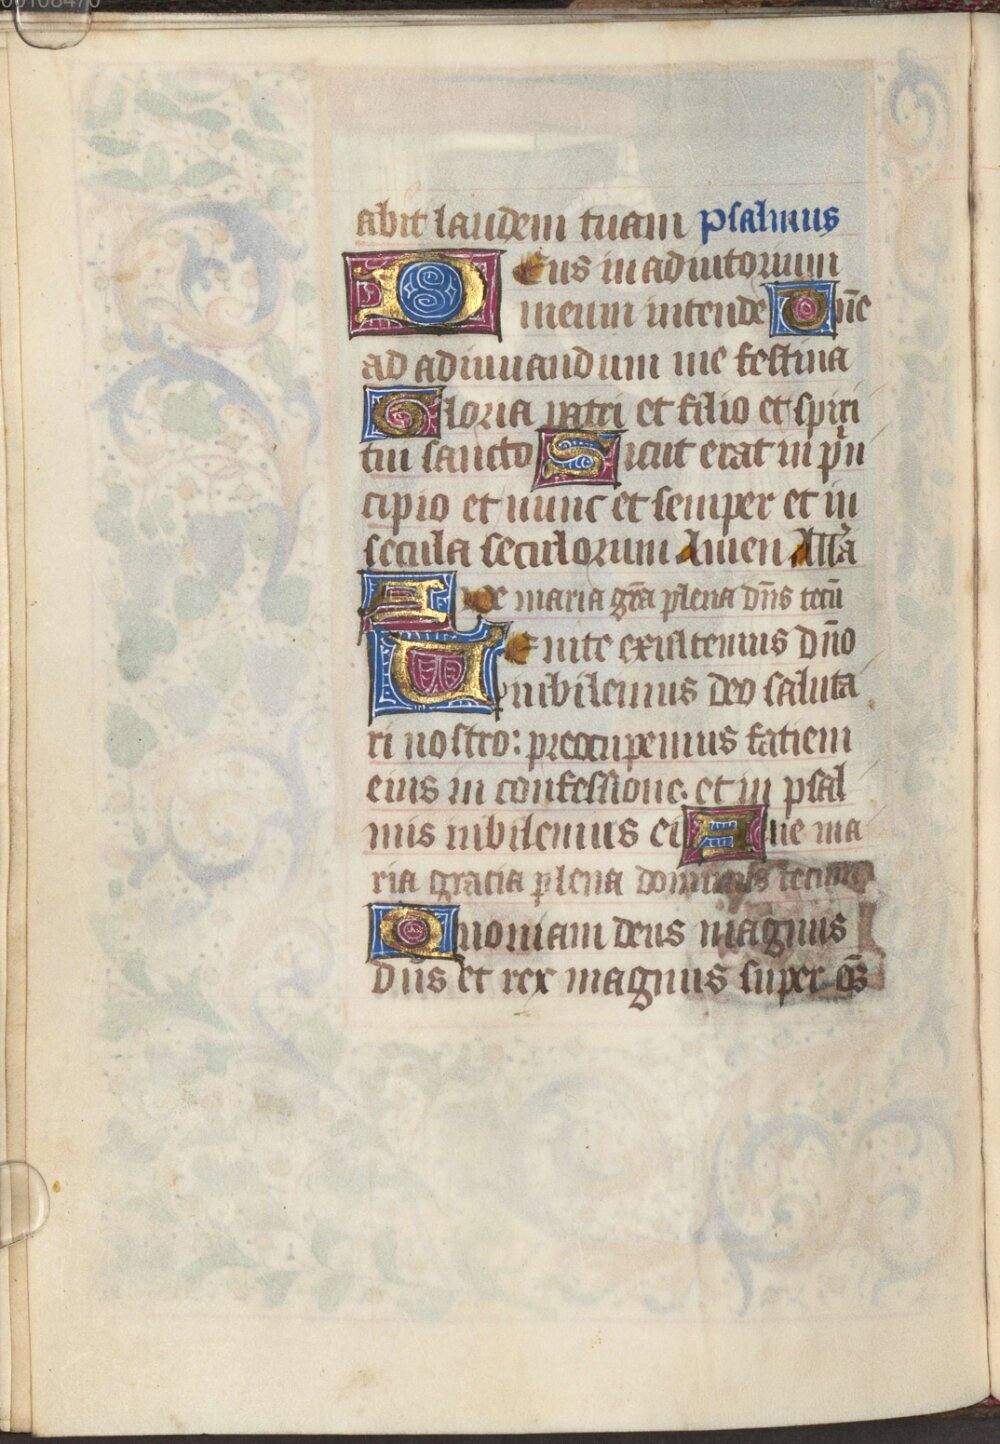 00108470
abit laudem tuam psalmus
Deus in adiutorium
meum intende Dn̄e
ad adiuuandum me festina
Gloria patri et filio et spiri
tui sancto Sicut erat in prin
cipio et nunc et semper et in
secula seculorum Amen All'a
Aue maria gr̄a plena dn̄s tecū
Venite exultemus dn̄o
iubilemus deo saluta
ri nostro: preocupemus fatiem
eius in confessione. et in psal
mis iubilemus ei Aue ma
ria gracia plena dominus tecum
Quoniam deus magnus
dn̄s et rex magnus super om̄s